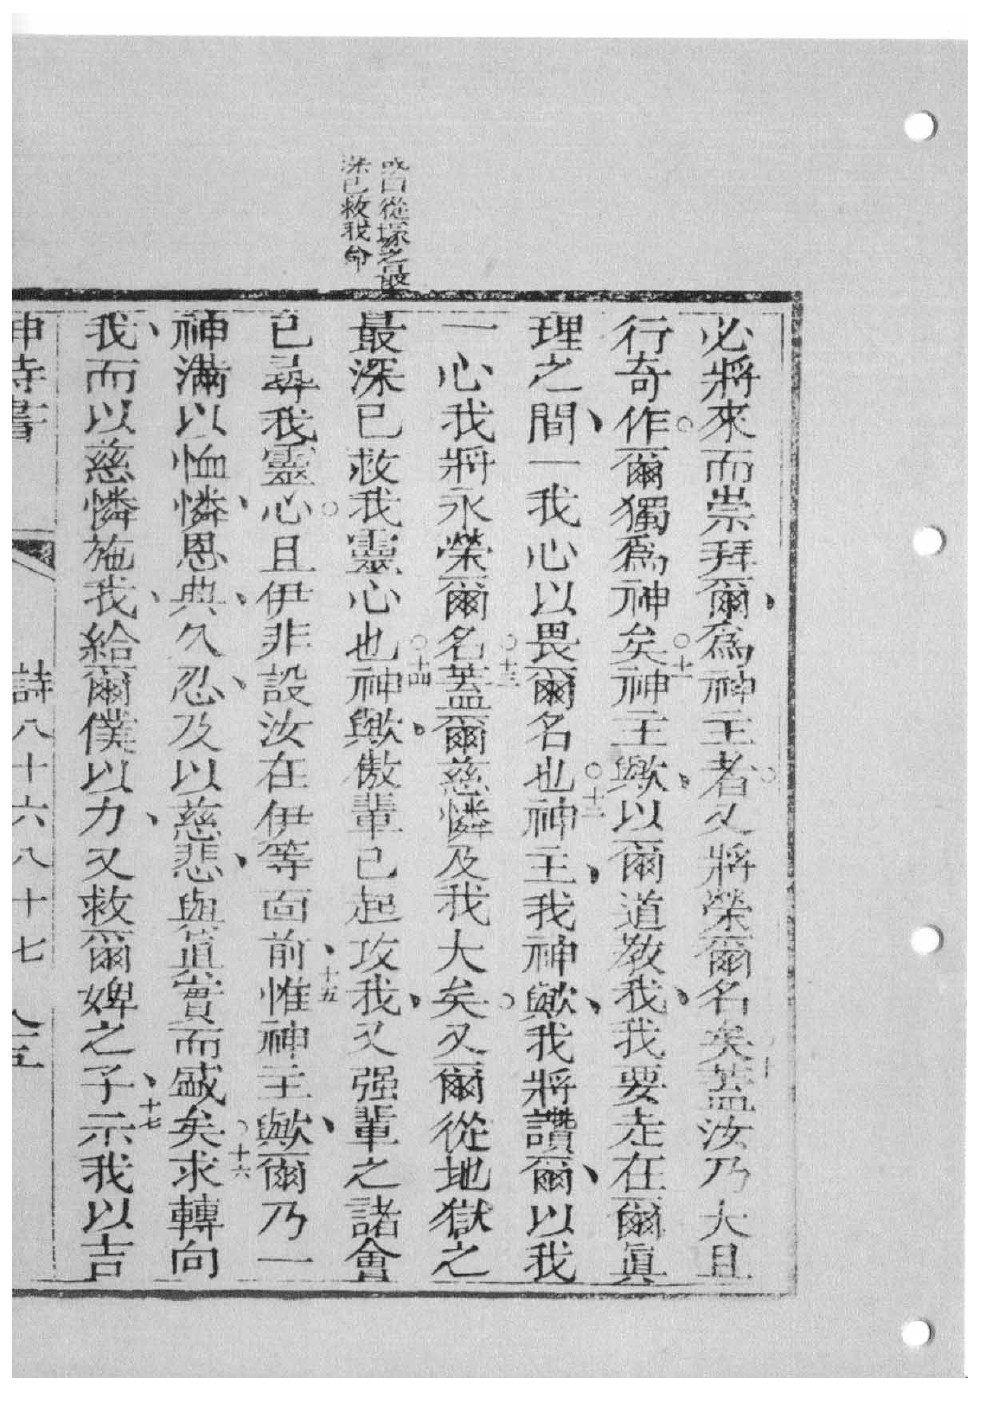 或曰從塚之最
深已救我命
必將來而崇拜爾、為神主者○又將榮爾名矣○十蓋汝乃大且
行奇作○爾獨為神矣○十一神主歟、以爾道教我、我要走在爾眞
理之間、一我心以畏爾名也○十二神主、我神歟、我將讚爾、以我
一心我將永榮爾名○十三蓋爾慈憐及我大矣○又爾從地獄之
最深已救我靈心也○十四神歟、傲輩已起攻我、又强輩之諸會
已尋我靈心○且伊非設汝在伊等面前、十五惟神主歟、爾乃一
神滿以恤憐、恩典、久忍、及以慈悲、與眞實而盛矣○十六求轉向
我、而以慈憐施我、給爾僕以力、又救爾婢之子、十七示我以吉
神詩書 詩八十六八十七 八五